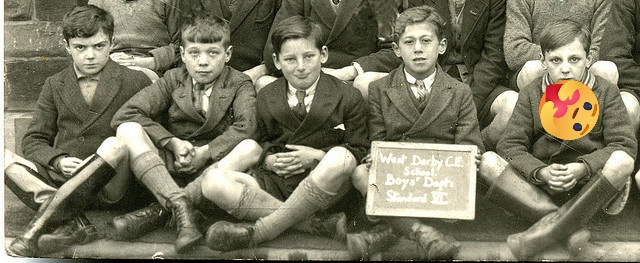 West Derby C.E.
School
Boys' Dept
Standard VI